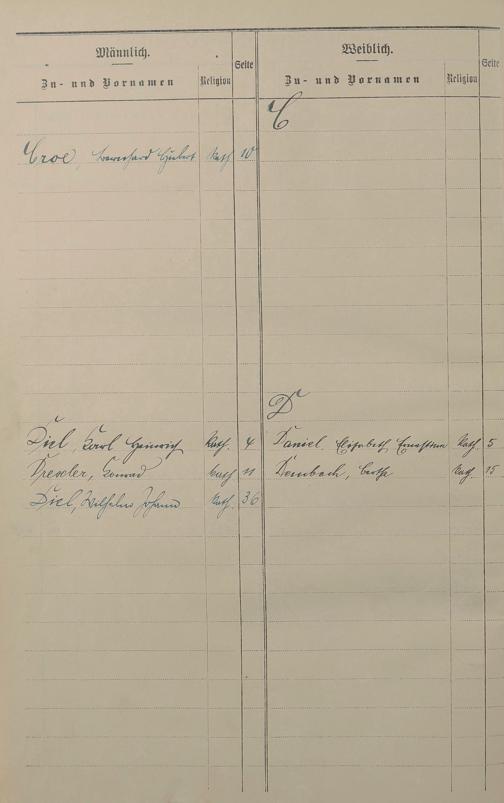 Männlich.
Zu- und Vornamen Religion Seite
Weiblich.
Zu- und Vornamen Religion Seite
C
Croe, Bernhard Hubert Kath. 10
D
Diel, Karl Heinrich Kath. 4
Daniel, Elisabeth Ernestine Kath. 5
Drescler, Konrad Kath. 11
Dembach, Kath. 15
Diel, Wilhelm Johann Kath. 36